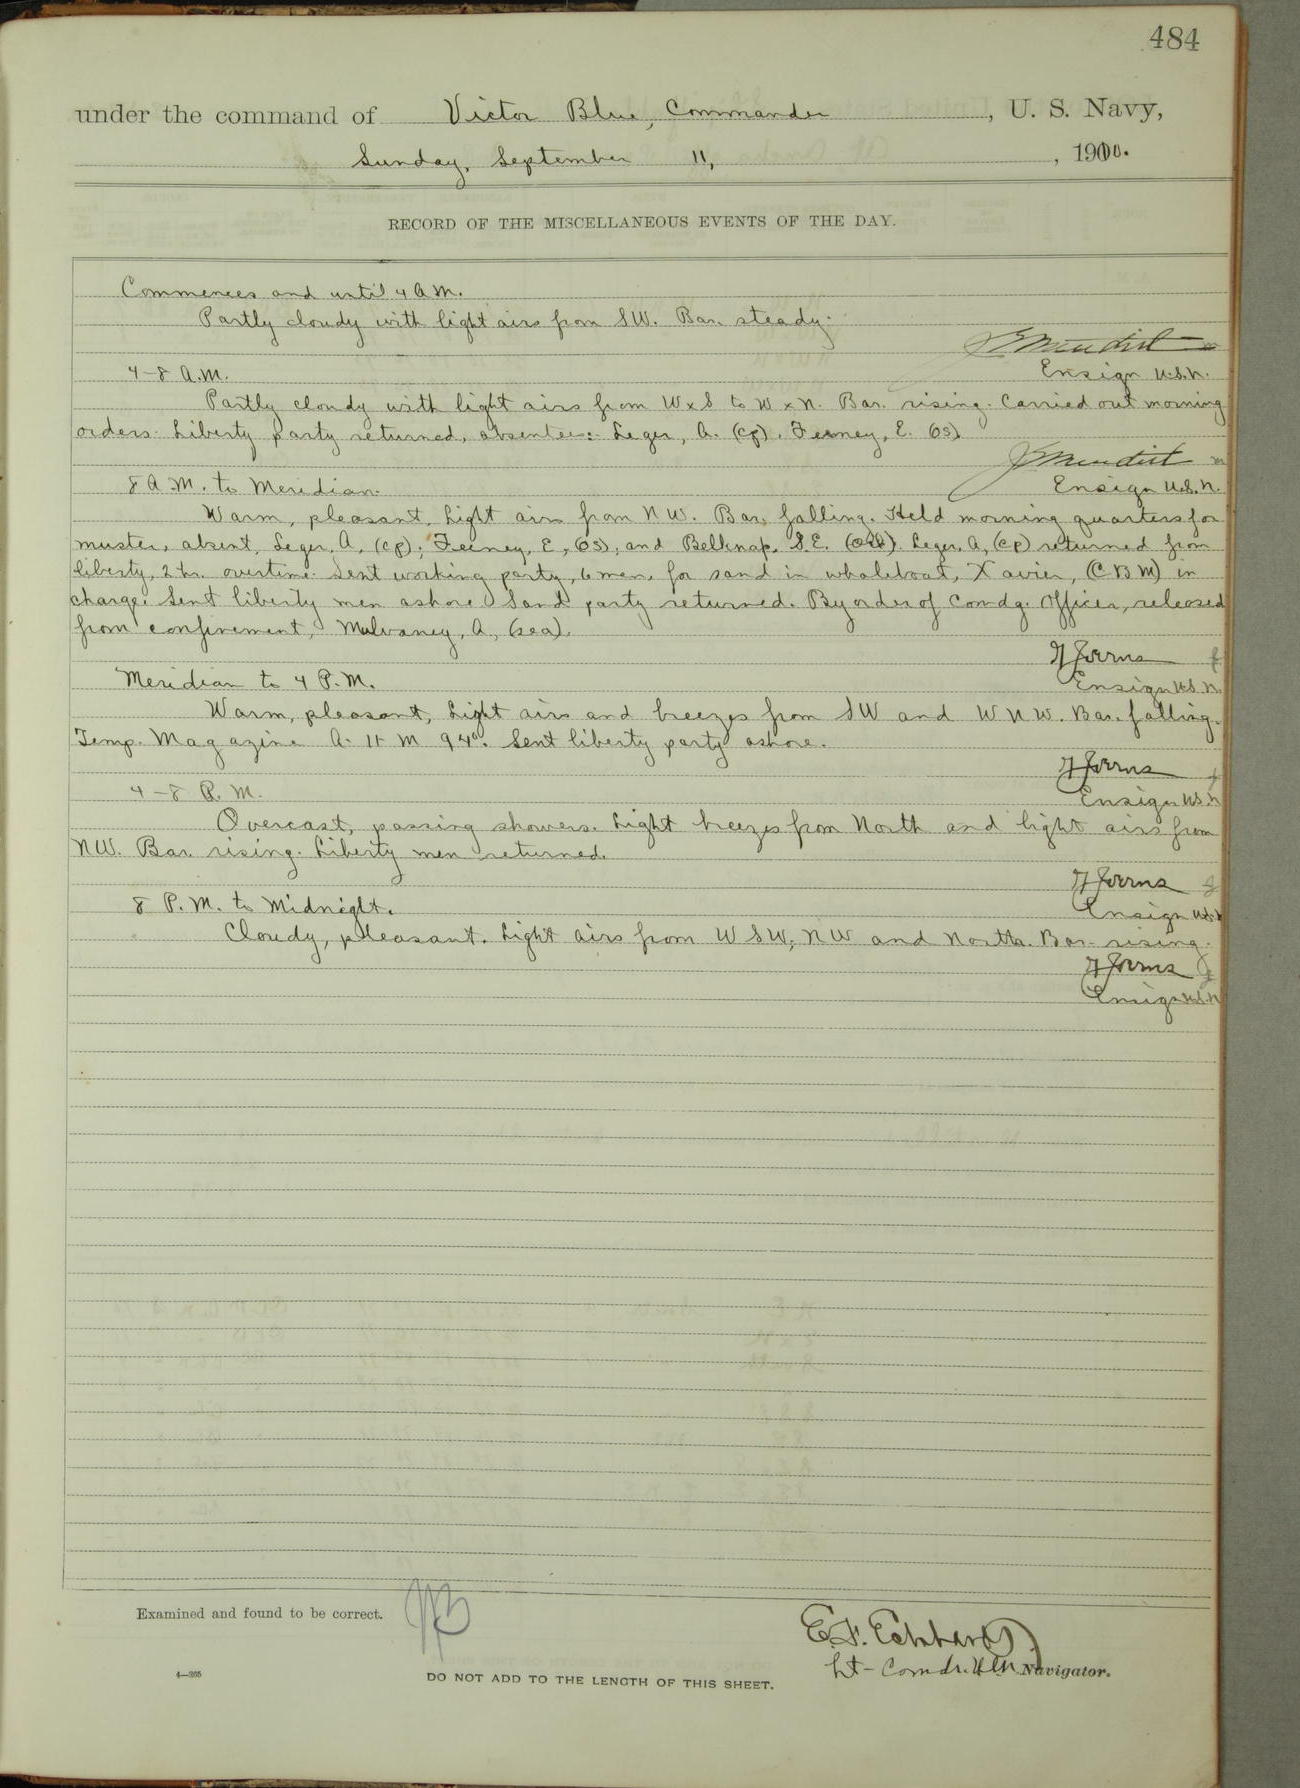 484
under the command of Victor Blue, Commander, U. S. Navy,
Sunday, September 11, 1910.
RECORD OF THE MISCELLANEOUS EVENTS OF THE DAY.
Commences and until 4 A.M.
Partly cloudy with light airs from SW. Bar. steady.
4-8 A.M.
Ensign U.S.N.
Partly cloudy with light airs from WxS to WxN. Bar. rising. Carried out morning
orders. Liberty party returned, absentees: Leger, A. (cp), Feeney, E. (OS)
8 A.M. to Meridian.
Ensign U.S.N.
Warm, pleasant, Light airs from NW. Bar. falling. Held morning quarters for
muster, absent, Leger, A, (cp); Feeney, E, (OS); and Belknap, S.E. Leger, A, (cp) returned from
liberty, 2 hr. overtime. Sent working party, 6 men, for sand in whaleboat, Xavier, (CBM) in
charge. Sent liberty men ashore. Sand party returned. By order of Comdg. Officer, released
from confinement, Mulvaney, A, (sea).
Meridian to 4 P.M.
Ensign U.S.N.
Warm, pleasant, Light airs and breezes from SW and WNW. Bar. falling.
Temp. Magazine A-11-M 94°. Sent liberty party ashore.
4-8 P.M.
Ensign U.S.N
Overcast, passing showers. Light breezes from North and light airs from
NW. Bar. rising. Liberty men returned.
8 P.M. to Midnight.
Ensign U.S.N
Cloudy, pleasant. Light airs from WSW, NW and North. Bar. rising.
Ensign U.S.N
Examined and found to be correct.
Lt-Comdr. U.S.N. Navigator.
4—265
DO NOT ADD TO THE LENGTH OF THIS SHEET.